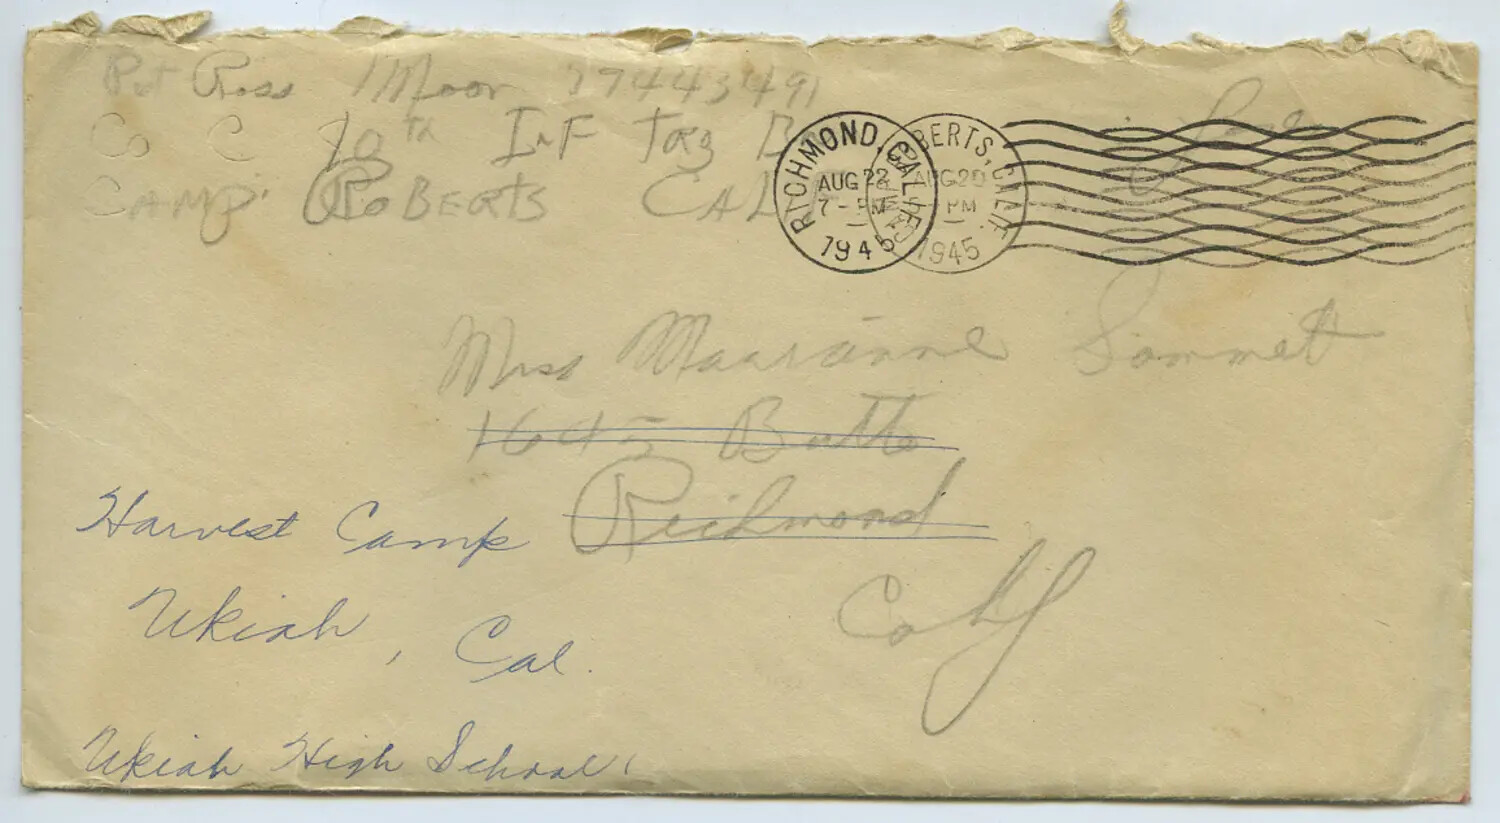 Pvt Ross Moor 77443491
Co C 70th Inf Trg Bn
CAMP ROBERTS CALIF
Free
RICHMOND, CALIF.
AUG 22
7 - PM
1945
ROBERTS, CALIF.
AUG 20
PM
1945
Miss Maarianne Sommet
1645 Butte
Richmond
Calif
Harvest Camp
Ukiah, Cal.
Ukiah High School